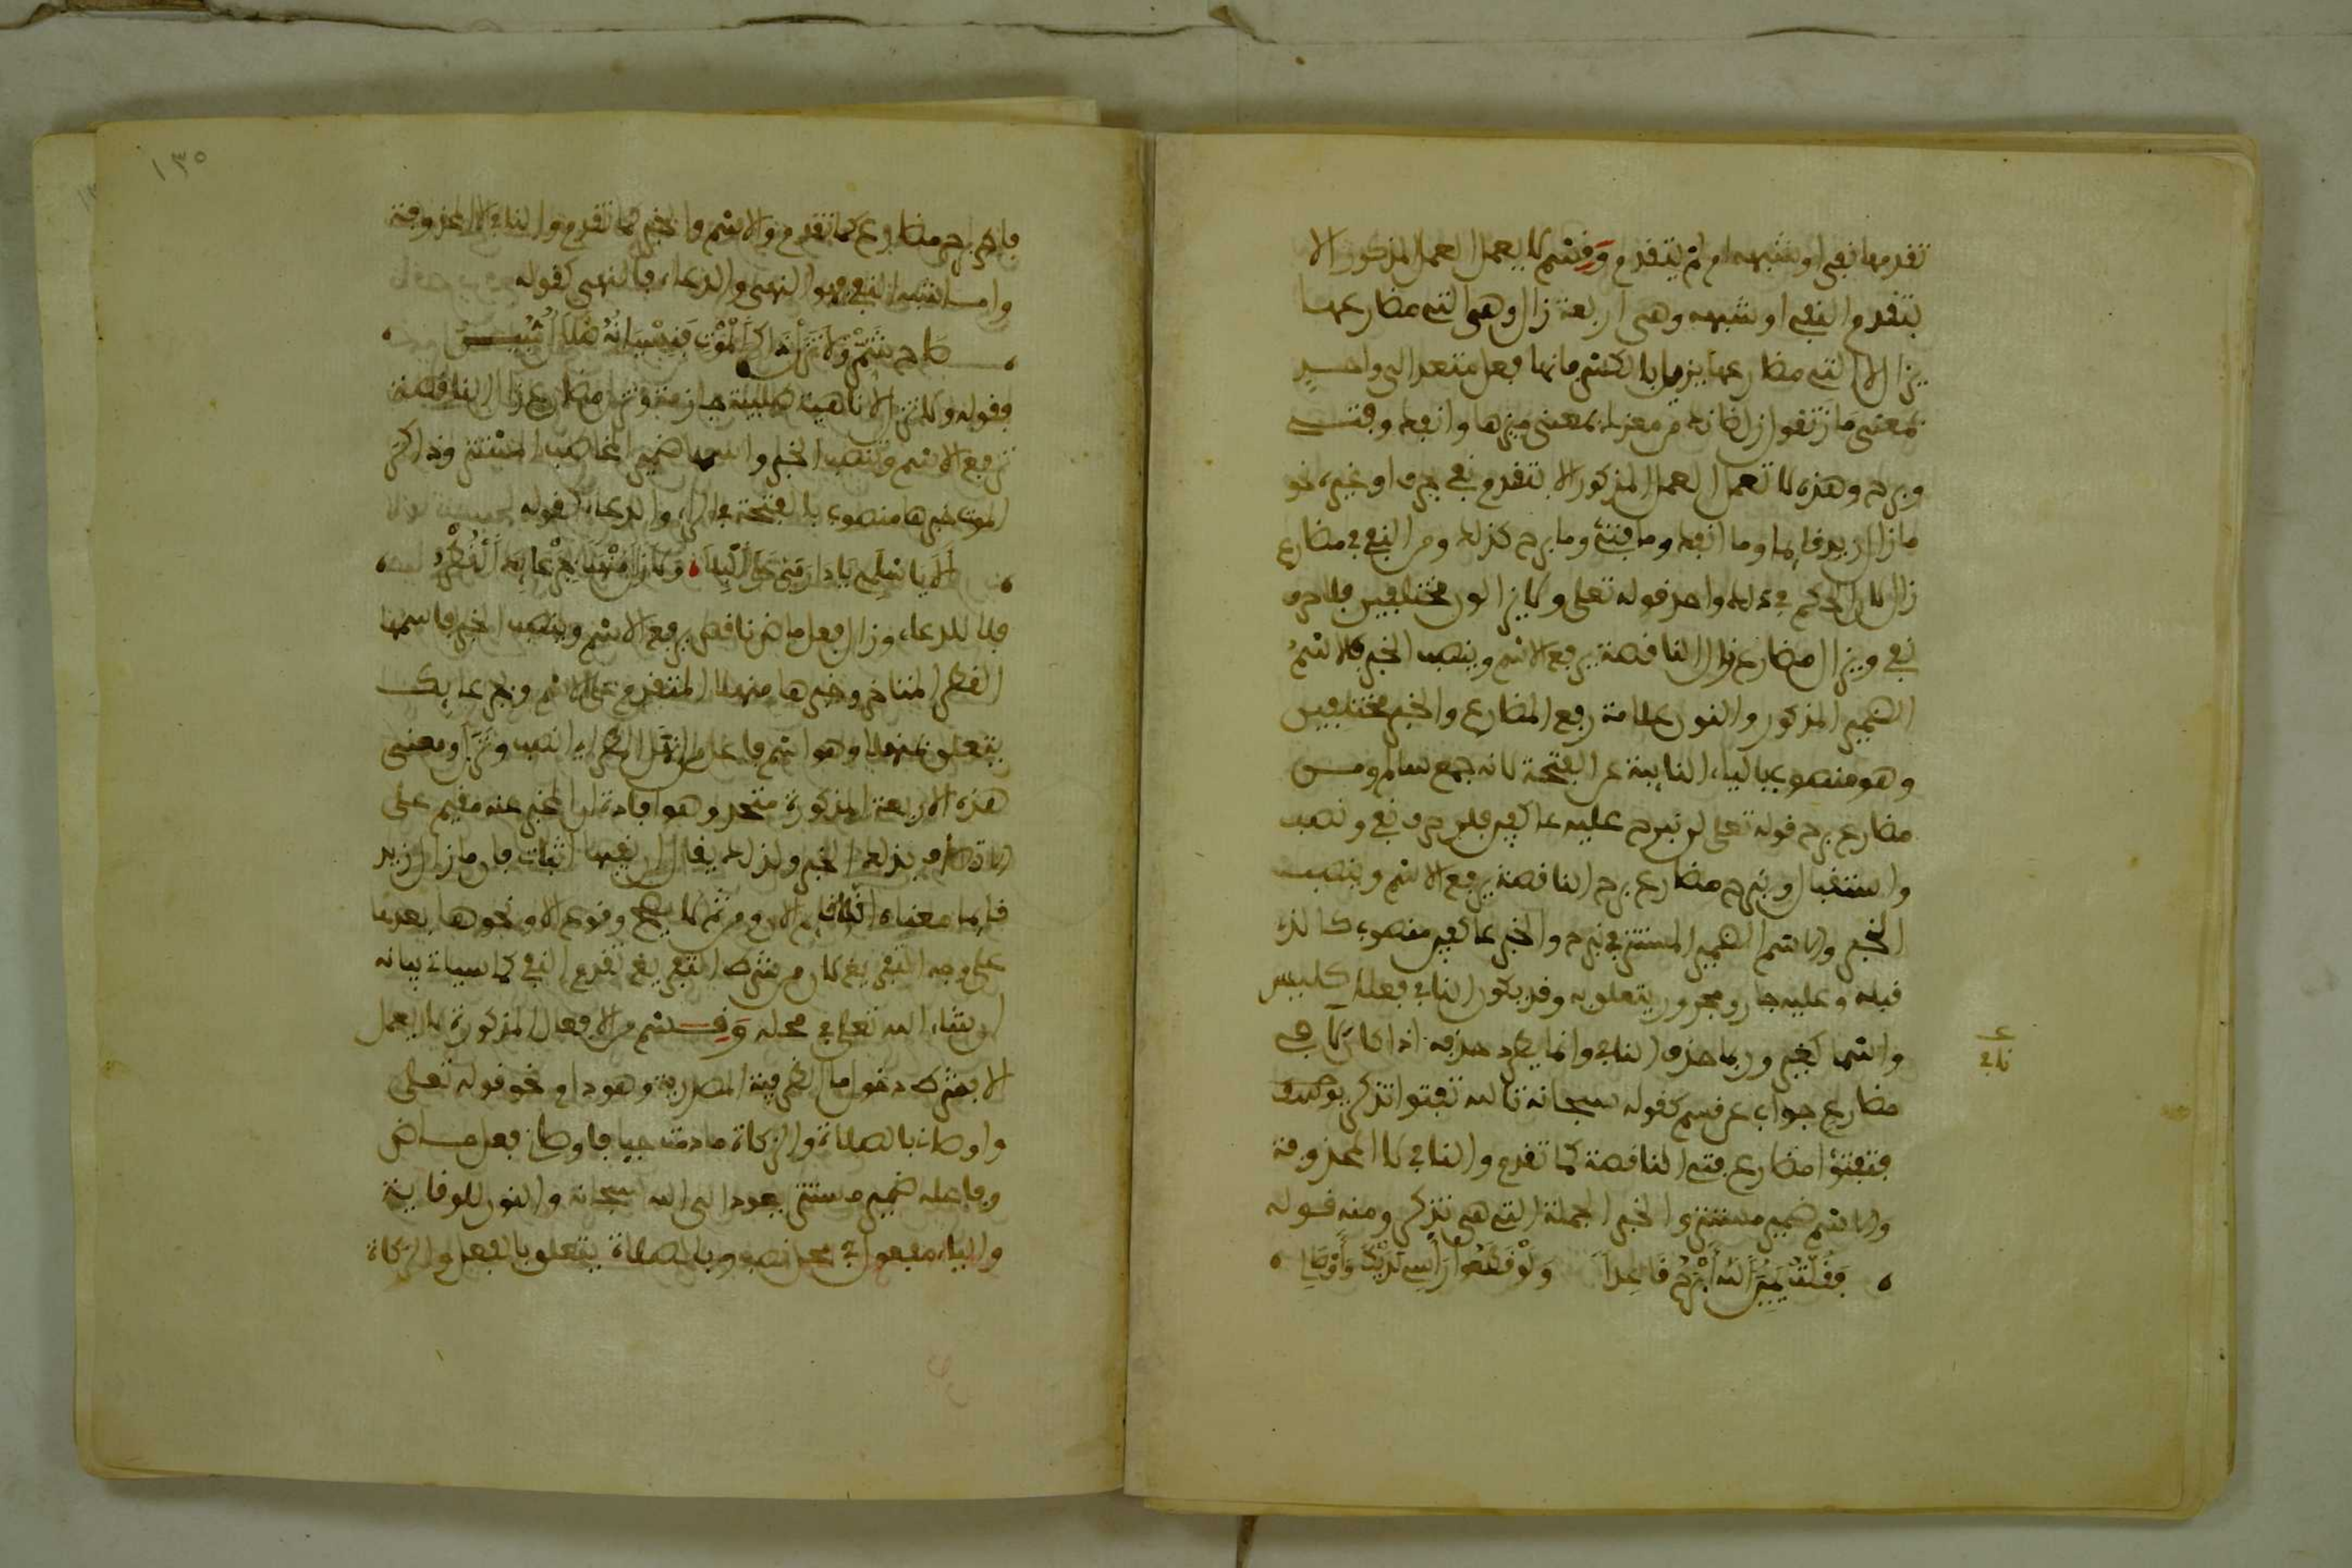 تقدمها نفي او شبهه ام لم يتقدم وقسم لا يعمل العمل المذكور الا
بتقدم النفي او شبهه وهي اربعة زال وهي التي مضارعها
يزال لا التي مضارعها يزول بالكسر فانها فعل متعد الى واحد
بمعنى ماز تقول زل ضانك من معزك بمعنى ميزها وانفك وفتئ
وبرح وهذه لا تعمل العمل المذكور الا بتقدم نفي بحرف او غيره نحو
ما زال زيد قايما وما انفك وما فتئ وما برح كذلك ومن النفي في مضارع
زال لان الحكم في ذلك واحد قوله تعلى ولا يزالون مختلفين فلا حرف
نفي ويزال مضارع زال الناقصة يرفع الاسم وينصب الخبر فالاسم
الضمير المذكور والنون علامة رفع المضارع والخبر مختلفين
وهو منصوب بالياء النايبة عن الفتحة لانه جمع سالم ومن
مضارع برح قوله تعلى لن نبرح عليه عاكفين فلن حرف نفي ونصب
واستقبال ونبرح مضارع برح الناقصة يرفع الاسم وينصب
الخبر والاسم الضمير المستتر في نبرح والخبر عاكفين منصوب كالذي
قبله وعليه جار ومجرور يتعلق به وقد يكون النافي فعلا كليس
واسما كغير وربما حذف النافي وانما يطرد حذفه اذا كان لا في
مضارع جواب عن قسم كقوله سبحانه تالله تفتؤا تذكر يوسف
فتفتؤا مضارع فتئ الناقصة كما تقدم والنافي لا المحذوفة
والاسم ضمير مستتر والخبر الجملة التي هي تذكر ومنه قوله
فقلت يمين الله ابرح قاعدا ولو قطعوا راسي لديك واوصالي
نافي
١٣٥
فابرح مضارع كما تقدم والاسم والخبر كما تقدم والنافي لا المحذوفة
واما شبه النفي فهو النهي والدعاء فالنهي كقوله
صاح شمر ولا تزل ذاكر الموت فنسيانه ضلال مبين
فقوله ولا تزل لا ناهية طلبية جازمة وتزل مضارع زال الناقصة
ترفع الاسم وتنصب الخبر واسمها ضمير المخاطب المستتر وذاكر
الموت خبرها منصوب بالفتحة في الراء والدعاء كقوله
الا يا اسلمي يا دار مي على البلا ولا زال منهلا بجرعايك القطر
فلا للدعاء وزال فعل ماض ناقص يرفع الاسم وينصب الخبر فاسمها
القطر المتاخر وخبرها منهلا المتقدم على الاسم وبجرعايك
يتعلق بمنهلا وهو اسم فاعل من انهل المطر اي انصب ونزل ومعنى
هذه الاربعة المذكورة متحد وهو افادة ان المخبر عنه مقيم على
الاتصاف بذلك الخبر ولذلك يقال ان نفيها اثبات فان ما زال زيد
قايما معناه انه قايم الان ومن ثم لا يصح وقوع الا ونحوها بعدها
على وجه التفريغ لان من شرط التفريغ تقدم النفي كما سياتي بيانه
ان شاء الله تعلى في محله وقسم من الافعال المذكورة لا يعمل
الا بشرط دخول ما الظرفية المصدرية وهو دام نحو قوله تعلى
واوصاني بالصلاة والزكاة ما دمت حيا فاوصاني فعل ماض
وفاعله ضمير مستتر يعود الى الله سبحانه والنون للوقاية
والياء مفعول في محل نصب وبالصلاة يتعلق بالفعل والزكاة